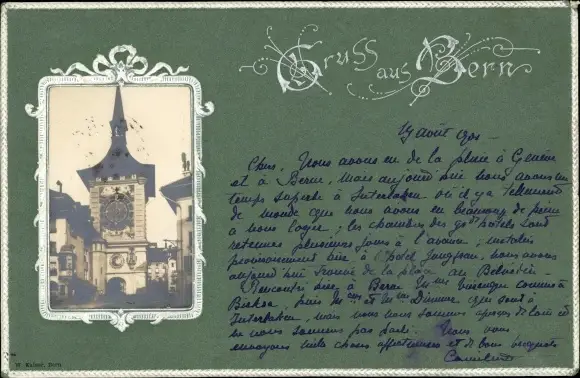 Gruss aus Bern
19 août 1901 -
Chers, Nous avons eu de la pluie à Genève
et à Berne, mais aujourd'hui nous avons un
temps superbe à Interlaken où il y a tellement
de monde que nous avons eu beaucoup de peine
à nous loger; les chambres des gds hotels sont
retenues plusieurs jours à l'avance,
provisoirement hier à l'hotel Jungfrau, nous avons
aujourd'hui trouvé de la place au Belvédère -
Rencontré hier à Berne
puis et qui sont à
Interlaken, mais nous nous sommes aperçus de loin et
ne nous sommes pas parlé. Nous vous
envoyons mille choses affectueuses et de bons
W. Kaiser, Bern